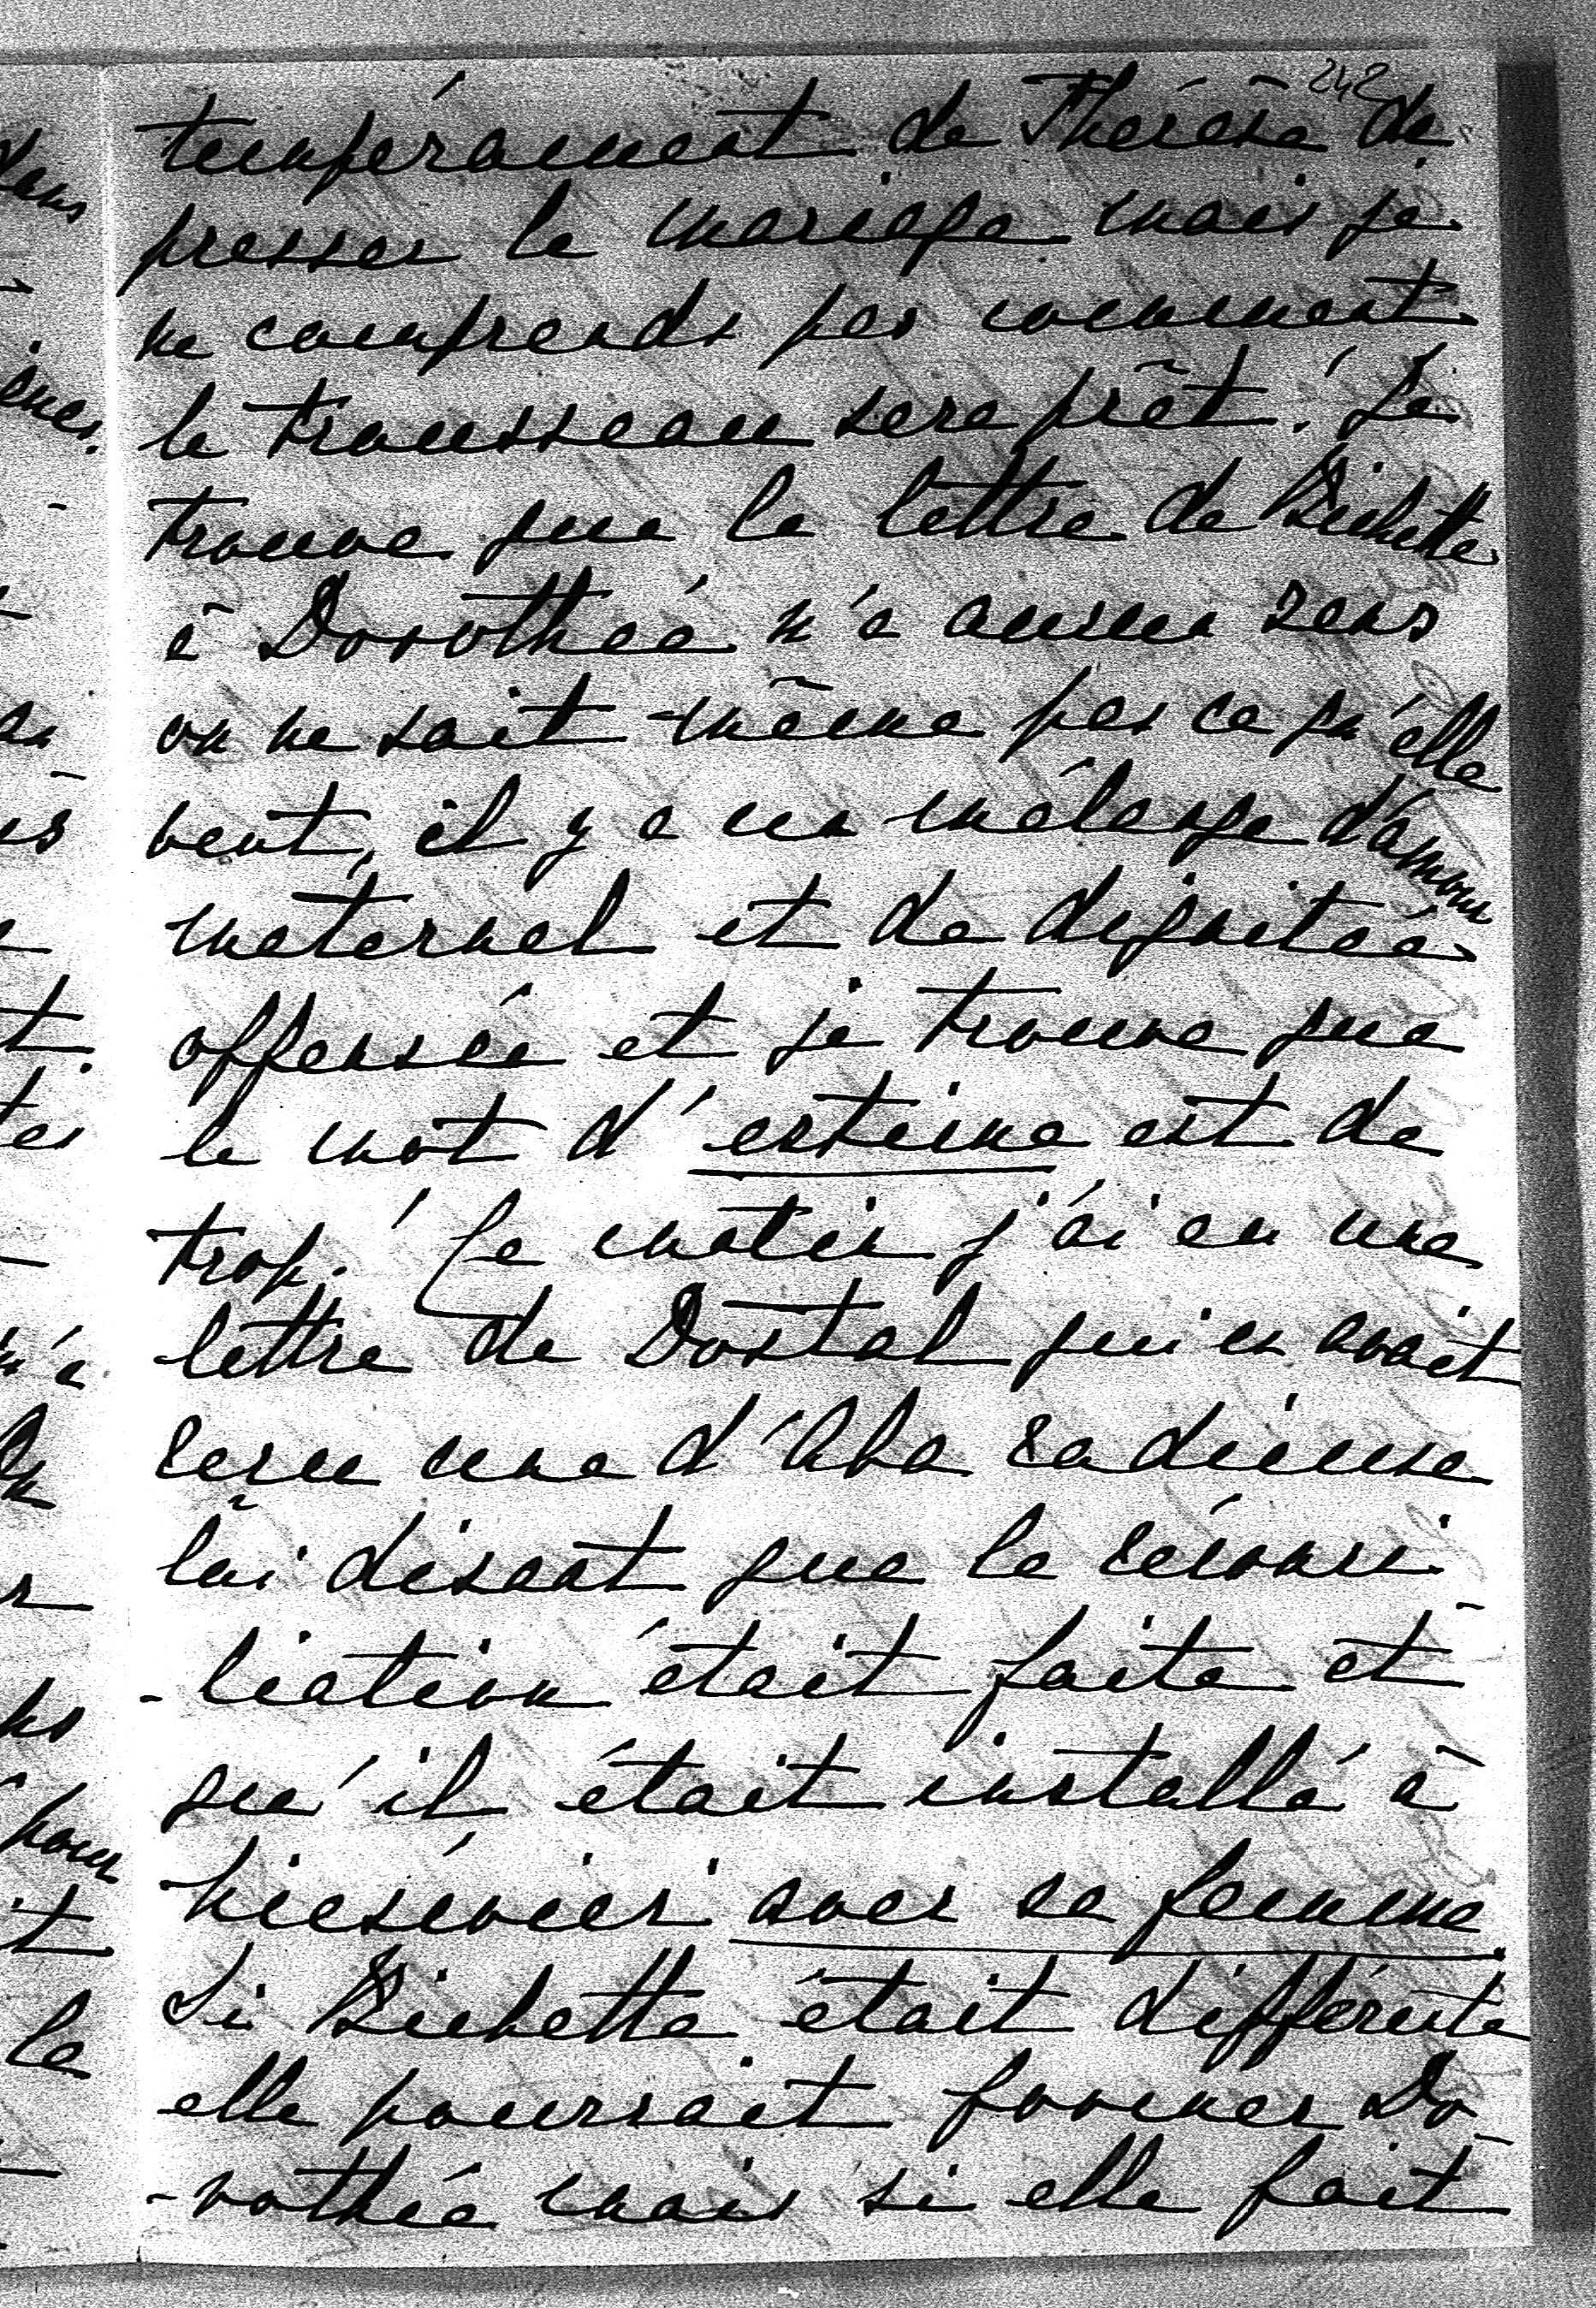 242
tempérament de Thérèse de
presser le mariage mais je
ne comprends pas comment
le trousseau sera prêt! Je
trouve que la lettre de Bichette
à Dorothée n'a aucun sens
on ne sait même pas ce qu'elle
veut, il y a un mélange d'amour
maternel et de dignitée
offensée et je trouve que
le mot d'estime est de
trop! Ce matin j'ai eu une
lettre de Dostal qui en avait
reçu une d'Aba radieuse
lui disant que la réconci
-liation était faite et
qu'il était installé à
avec sa femme.
Si Bichette était différente
elle pourrait former Do-
-rothée mais si elle fait
dans
pour
la